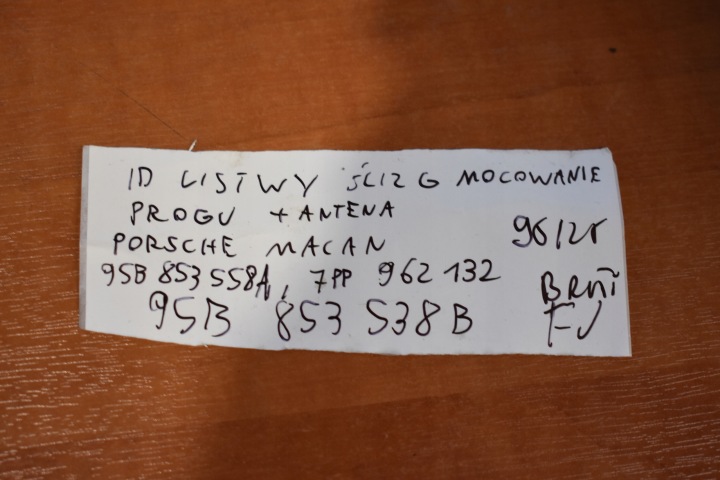 ID LISTWY ŚLIZG MOCOWANIE
PROGU + ANTENA
PORSCHE MACAN
95B 853 558A, 7PP 962 132
95B 853 538B